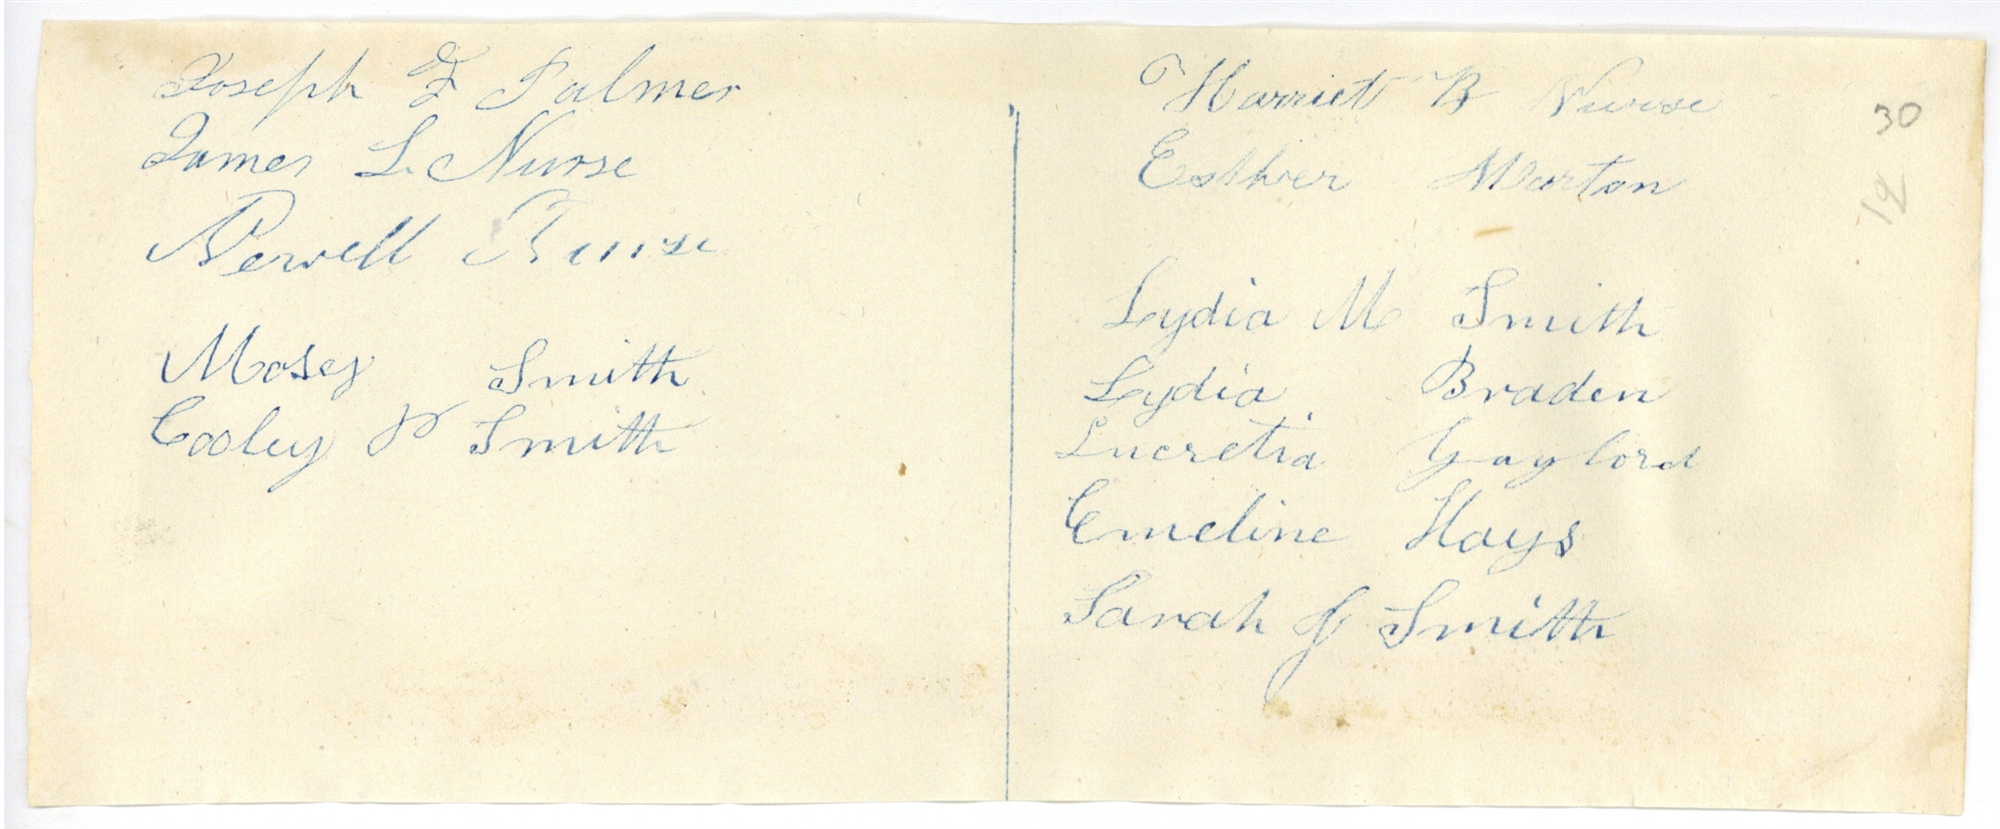 Joseph F Palmer
James L. Nurse
Newell Nurse
Moses Smith
Cooley P Smith
Harriet B Nurse
Esther Marton
Lydia M Smith
Lydia Braden
Lucretia Gaylord
Emeline Hays
Sarah J Smith
30
19